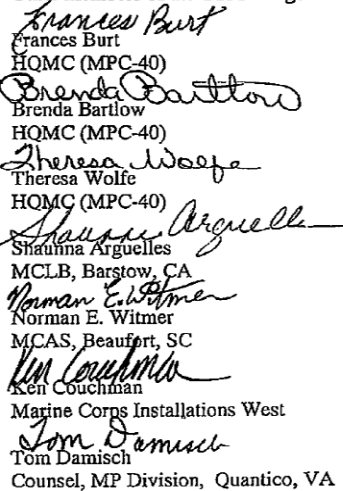 Frances Burt
Frances Burt
HQMC (MPC-40)
Brenda Bartlow
Brenda Bartlow
HQMC (MPC-40)
Theresa Wolfe
Theresa Wolfe
HQMC (MPC-40)
Shaunna Arguelles
Shaunna Arguelles
MCLB, Barstow, CA
Norman E. Witmer
Norman E. Witmer
MCAS, Beaufort, SC
Ken Couchman
Ken Couchman
Marine Corps Installations West
Tom Damisch
Tom Damisch
Counsel, MP Division, Quantico, VA